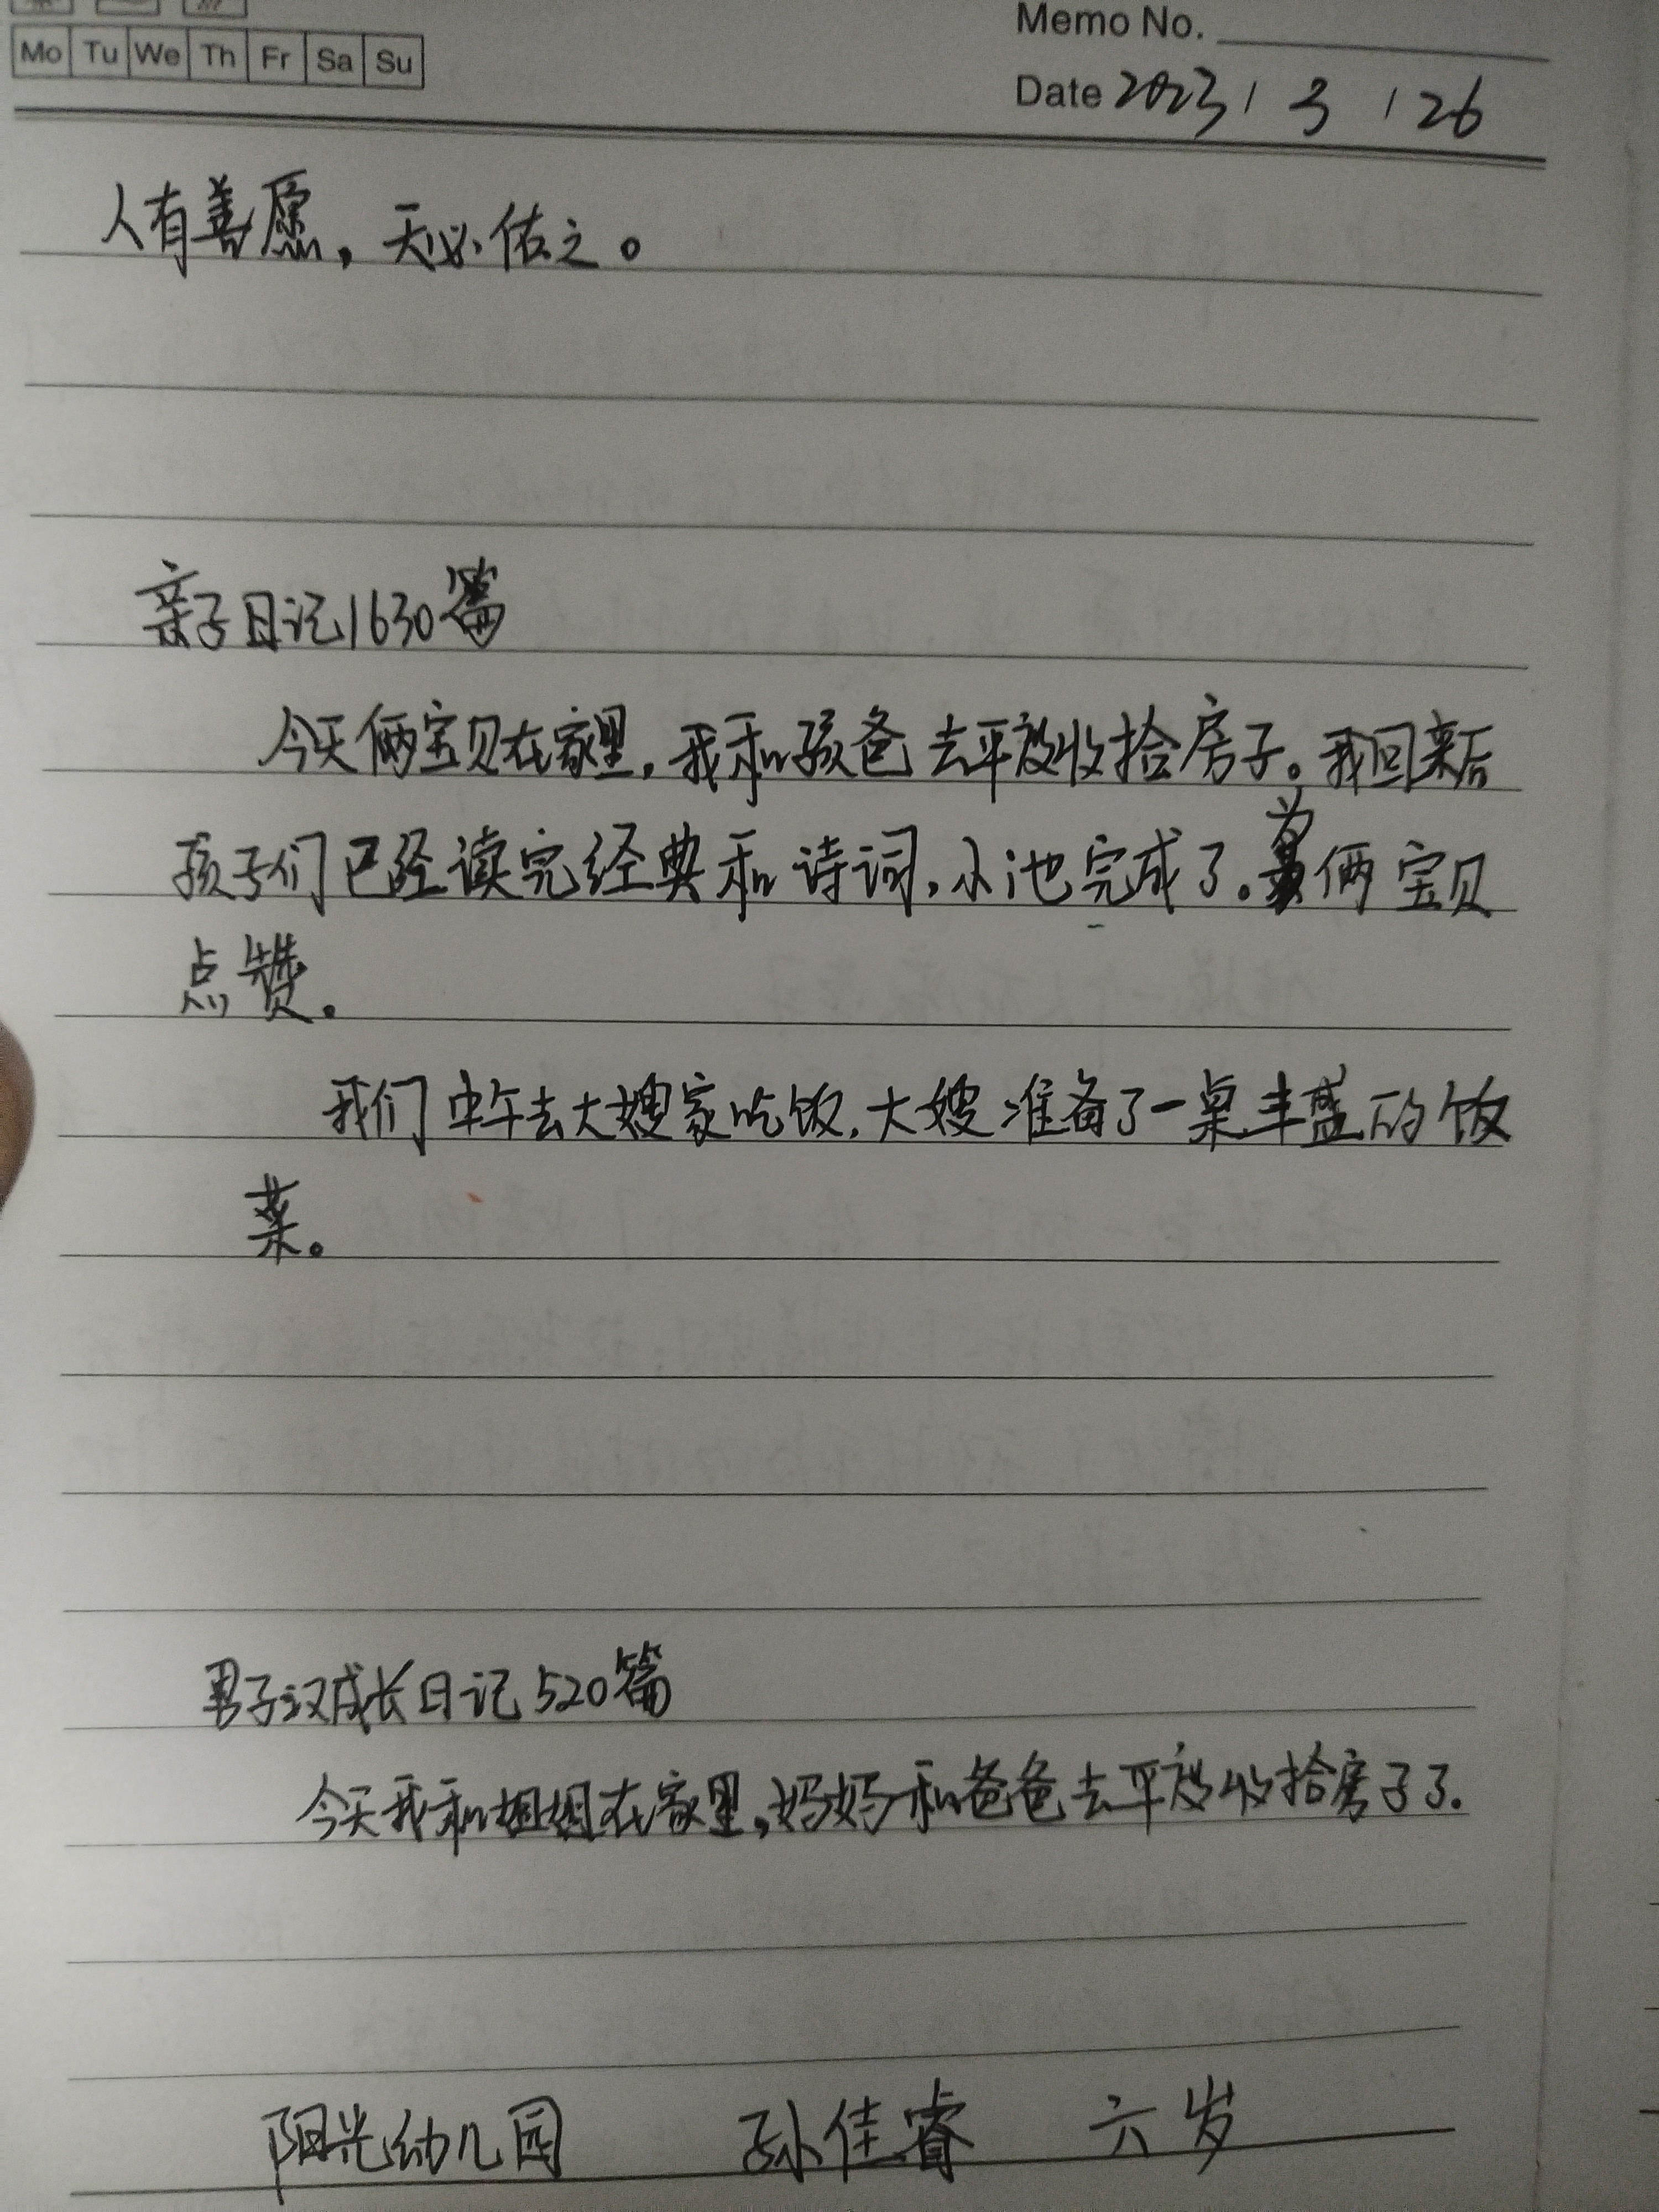 Mo Tu We Th Fr Sa Su
Memo No.
Date 2023 / 3 / 26
人有善愿，天必佑之。
亲子日记1630篇
今天俩宝贝在家里，我和孩爸去平度收拾房子。我回来后
孩子们已经读完经典和诗词，小池完成了。为俩宝贝
点赞。
我们中午去大嫂家吃饭，大嫂准备了一桌丰盛的饭
菜。
男子汉成长日记520篇
今天我和姐姐在家里，妈妈和爸爸去平度收拾房子了。
阳光幼儿园 孙佳睿 六岁